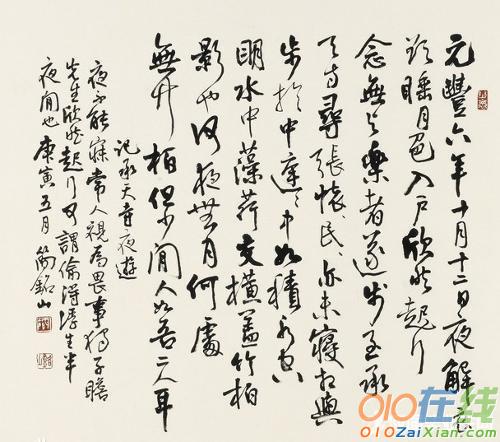 元豐六年十月十二日夜解衣
欲睡月色入戶欣然起行
念無與樂者遂步至承
天寺尋張懷民〻亦未寢相與
步於中庭〻中如積水空
明水中藻荇交橫蓋竹柏
影也何夜無月何處
無竹柏但少閒人如吾二人耳
記承天寺夜遊
夜不能寐常人視為畏事獨子瞻
先生欣然起行可謂偷得浮生半
夜閒也 庚寅五月 銘山
010在线
010ZaiXian.com